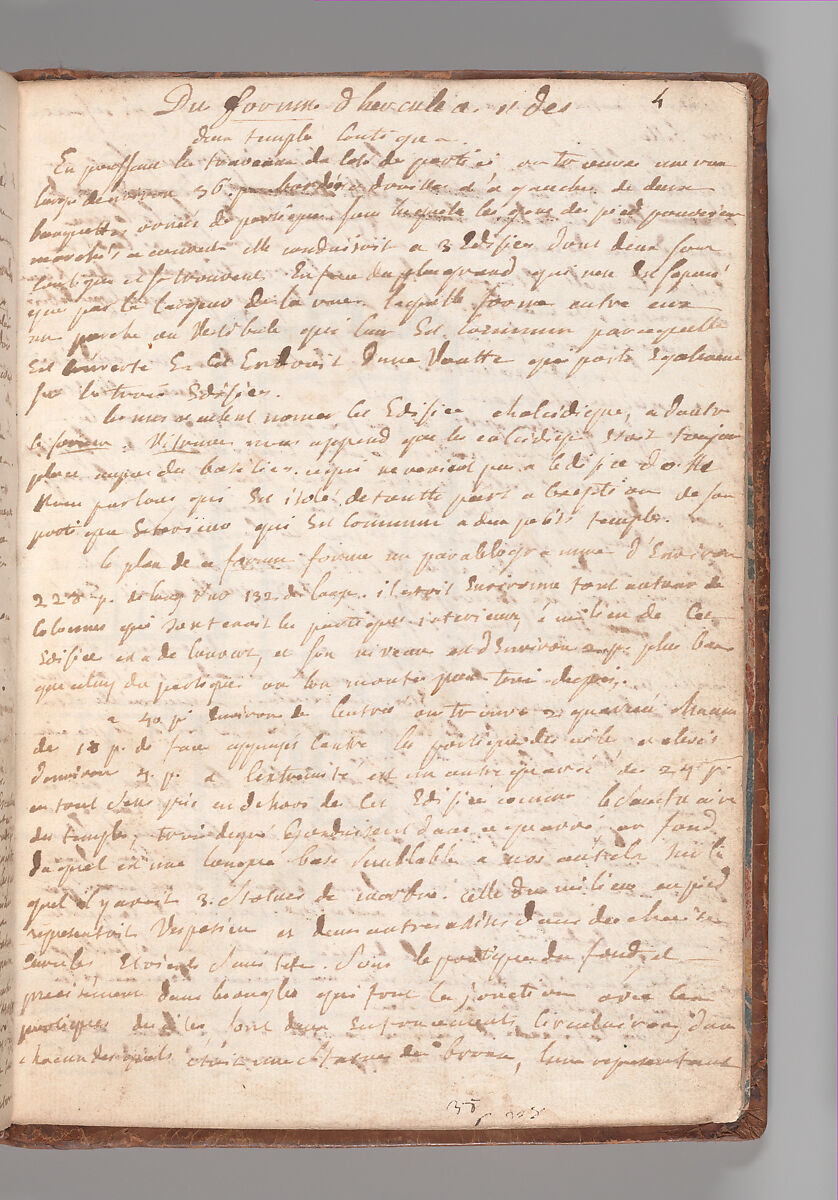 Du forum d'herculea. et des 4
deux temples contigus
En poussant les travaux du coté de portici on trouva une rue
large d'environ 36 p. bordée a droitte et à gauche de deux
banquettes ornées de portiques sous lesquels les gens de pied pouvoient
marcher a couvert elle conduisoit a 3 Edifices dont deux sont
contigus et se trouvent En face du plus grand qui n'en Est separé
que par la largeur de la rue laquelle forme entre eux
un porche ou Vestibule qui leur Est Commun parcequelle
Est couverte En cet Endroit d'une Voutte qui porte Egalement
sur les trois Edifices.
les uns veulent nomer cet Edifice chalcidique, d'autre
le forum. Vitruve nous apprend que les calcidiques Etoit toujour
placé auprès des basiliques. ce qui ne revient pas a ledifice dont
nous parlons qui Est isolé de toutte part a l'exeption de son
portique Exterieur qui Est Commun a deux petits temples.
le plan de ce forum forme un parallelogramme d'Environ
228 p. de long sur 132 de large. il etoit Environné tout autour de
Colonnes qui soutenoit les portiques interieurs, le milieu de Cet
Edifice est a de couvert, et son niveau est d'Environ 2 p. plus bas
que celuy du portique ou lon monte par trois degrés.
a 40 p. Environ de lentrée on trouve 2 quarrés chacun
de 18 p. de face appuyés contre les portiques des cotés et elevés
d'environ 4 p. a lextremité est un autre quarré de 24 p.
en tout sens pris en dehors de Cet Edifice comme le sanctuaire
des temples, trois degrés Conduisent dans ce quarré au fond
duquel est une longue base semblable a nos autels sur la
quel il y avoit 3 statues de marbre. celle du milieu en pied
representoit Vespasien et deux autres assises dans des chaises
curules Etoient sans tete. Sous le portique du fond et
precisement dans les angles qui font la jonction avec les
portiques des ailes, sont deux Enfoncements Circulaires, dans
chacun desquels etait une statue de bronze, l'une representant
35